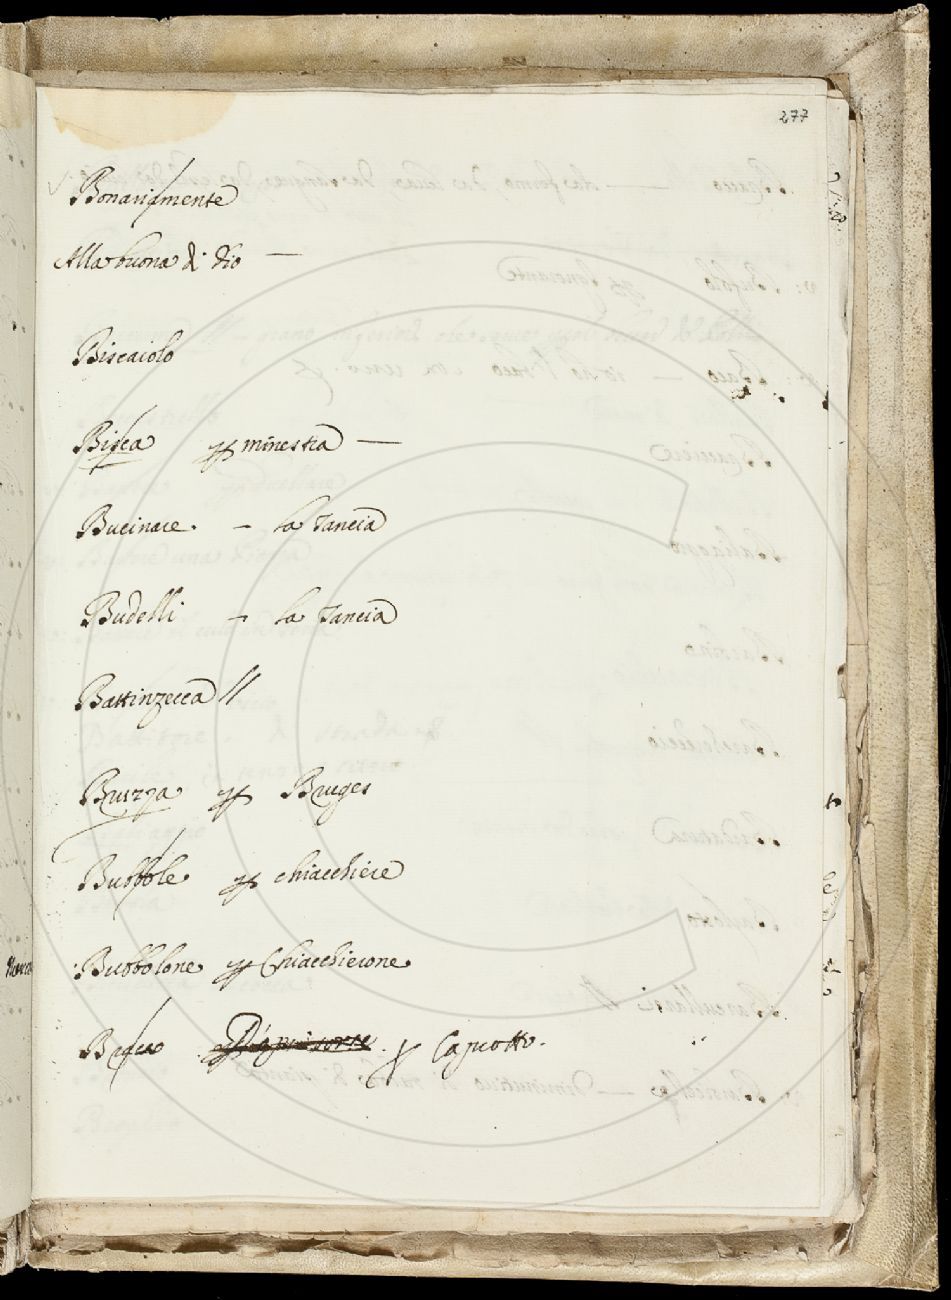 277
Bonariamente
Alla buona di Dio —
Biscaiolo
Bisca p minestra —
Bucinare. – la Tancia
Budelli – la Tancia
Battinzecca //
Buezza p Bruges
Bubbole p chiacchiere
Bubbolone p Chiacchierone
p Capuotto.